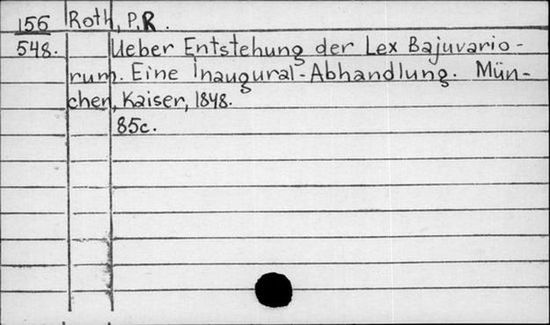 156 Roth, P. R.
548. Ueber Entstehung der Lex Bajuvario-
rum. Eine Inaugural-Abhandlung. Mün-
chen, Kaiser, 1848.
85c.